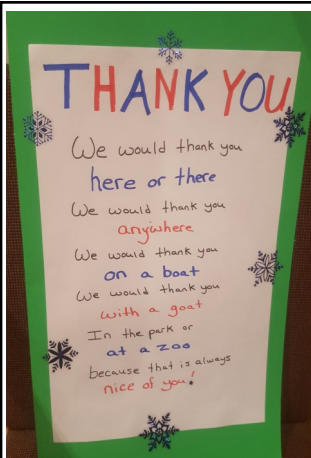 THANK YOU
We would thank you
here or there
We would thank you
anywhere
We would thank you
on a boat
We would thank you
with a goat
In the park or
at a zoo
because that is always
nice of you!